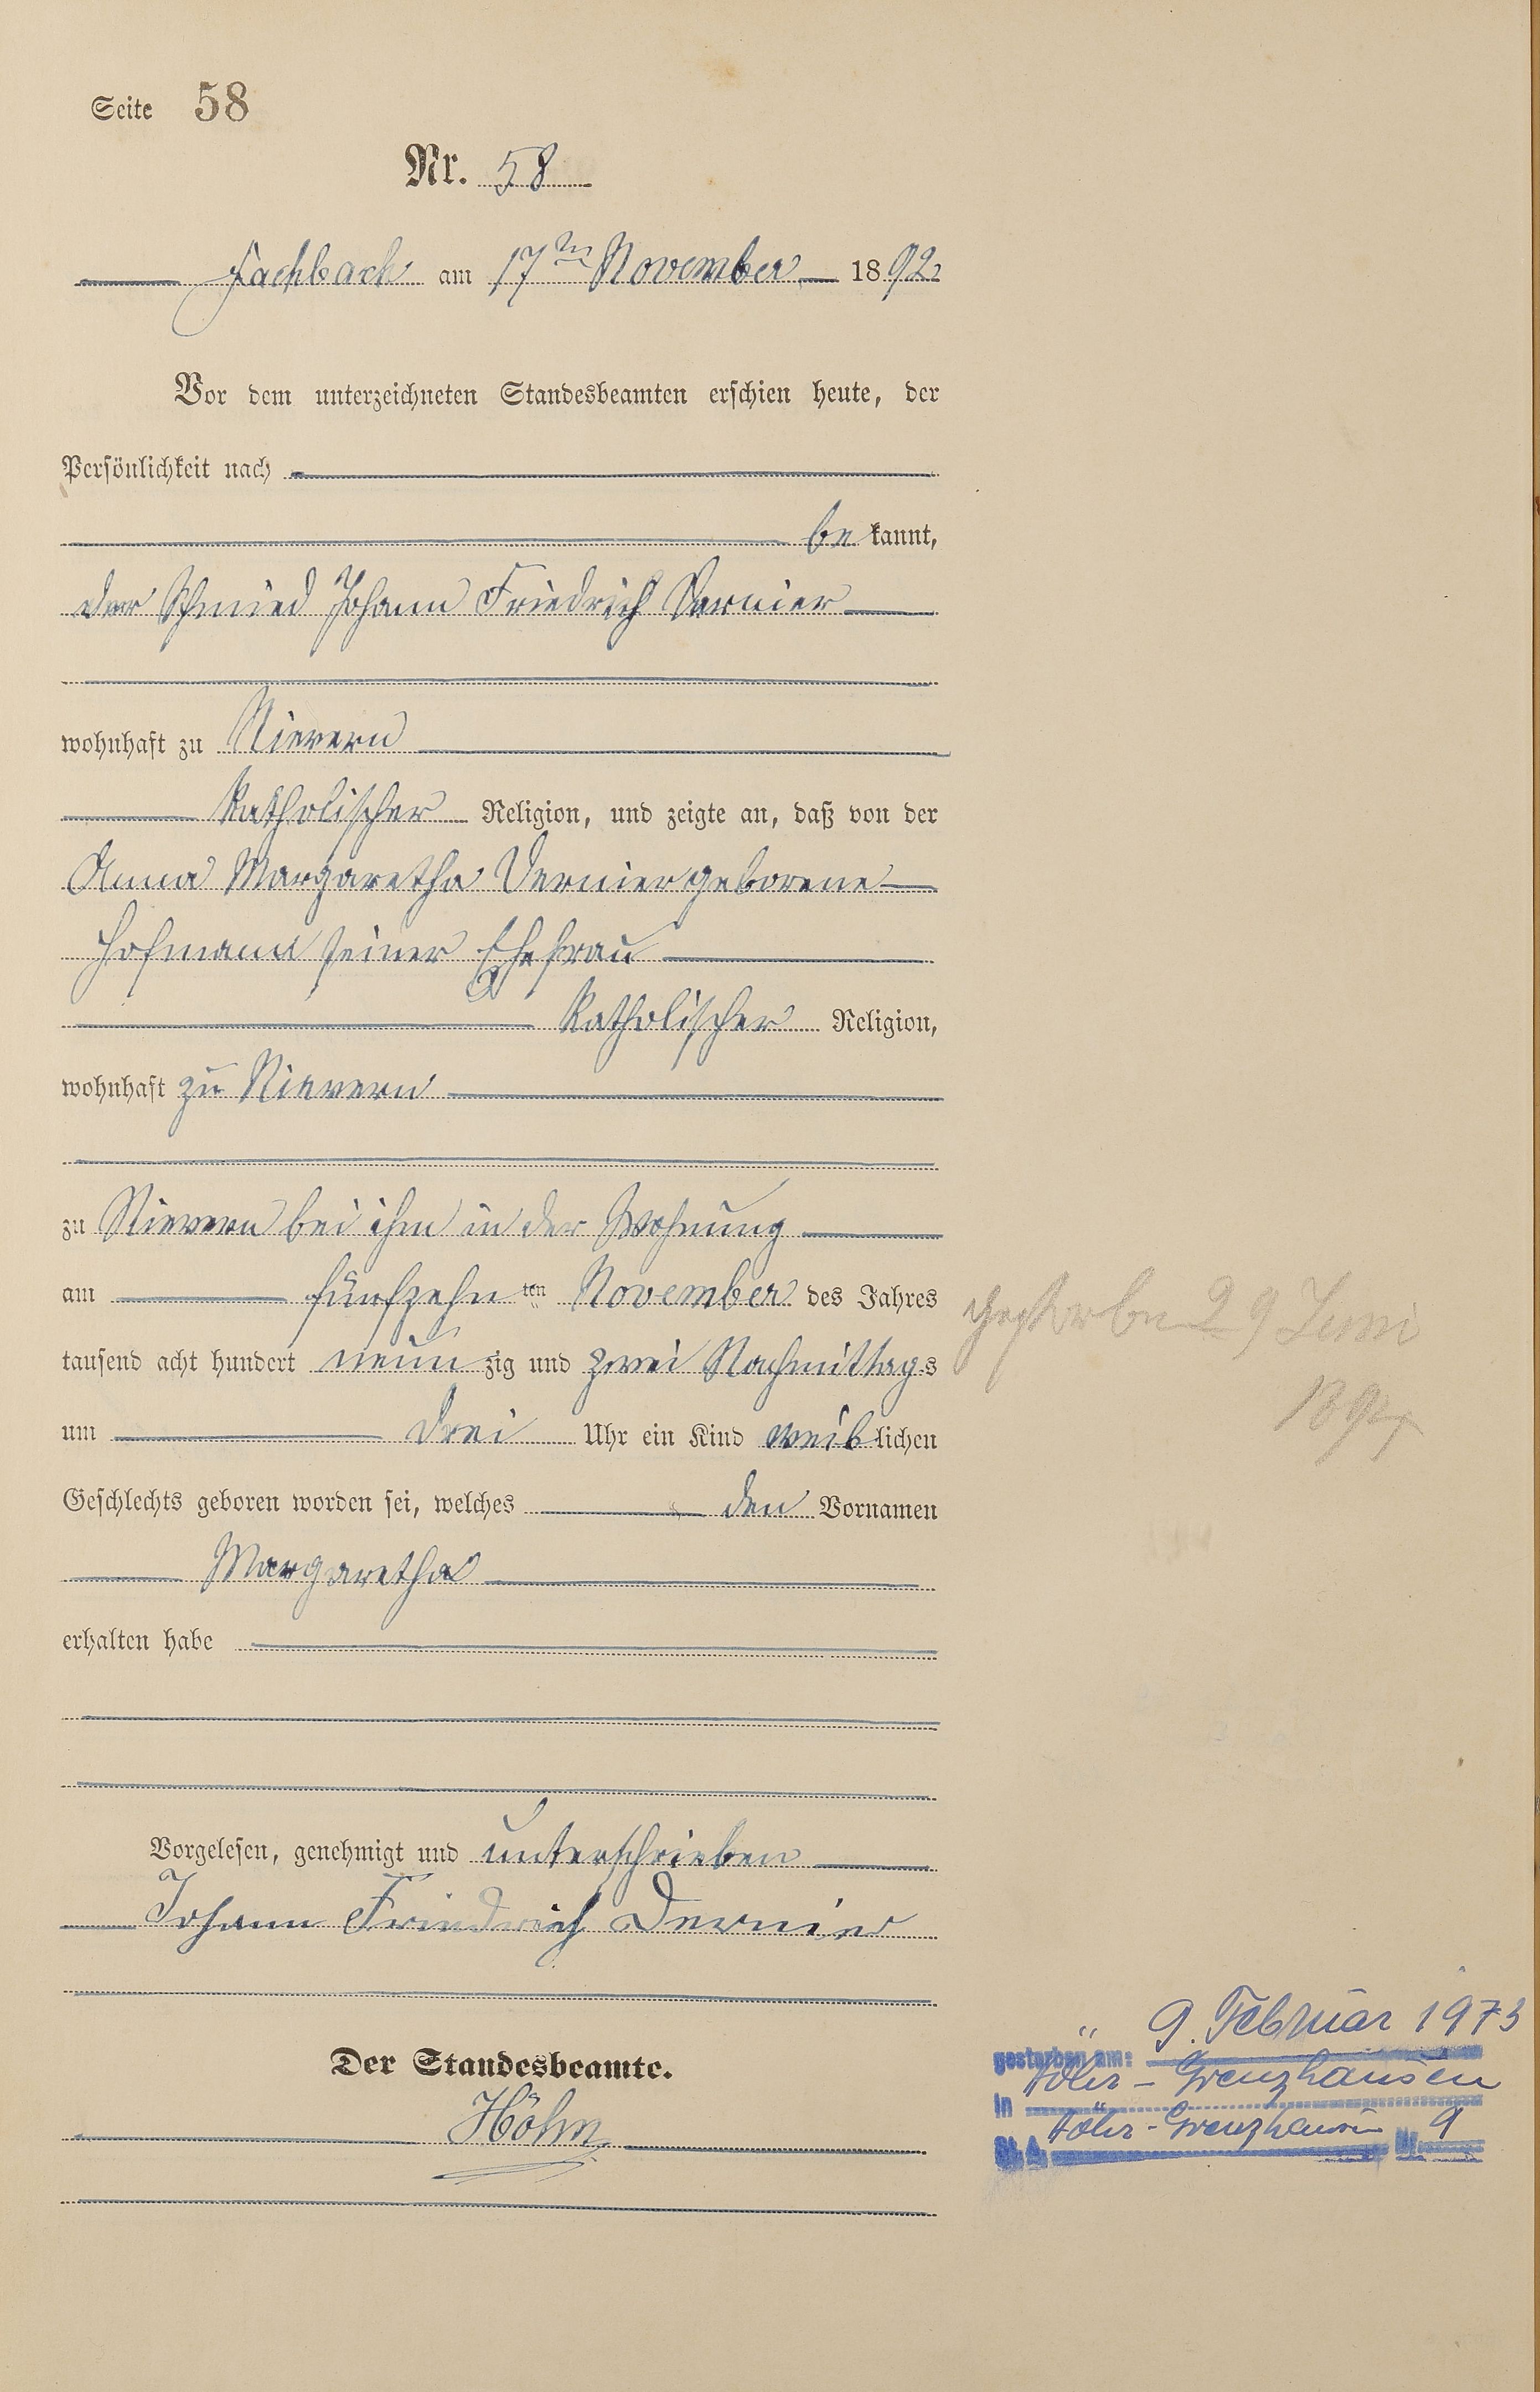 Seite 58
Nr. 58
Fachbach am 17ten November 1892
Vor dem unterzeichneten Standesbeamten erschien heute, der
Persönlichkeit nach
be kannt,
der Schmied Johann Friedrich Vernier
wohnhaft zu Nievern
katholischer Religion, und zeigte an, daß von der
Anna Margaretha Vernier geborene
Hofmann seiner Ehefrau
katholischer Religion,
wohnhaft zu Nievern
zu Nievern bei ihm in der Wohnung
am fünfzehn ten November des Jahres
tausend acht hundert neun zig und zwei Nachmittags
um drei Uhr ein Kind weiblichen
Geschlechts geboren worden sei, welches den Vornamen
Margaretha
erhalten habe
Vorgelesen, genehmigt und unterschrieben
Johann Friedrich Vernier
Der Standesbeamte.
Höhn
gestorben 29 Juni
gestorben am: 9. Februar 1973
in Höhr-Grenzhausen
St.A. Höhr-Grenzhausen Nr. 9